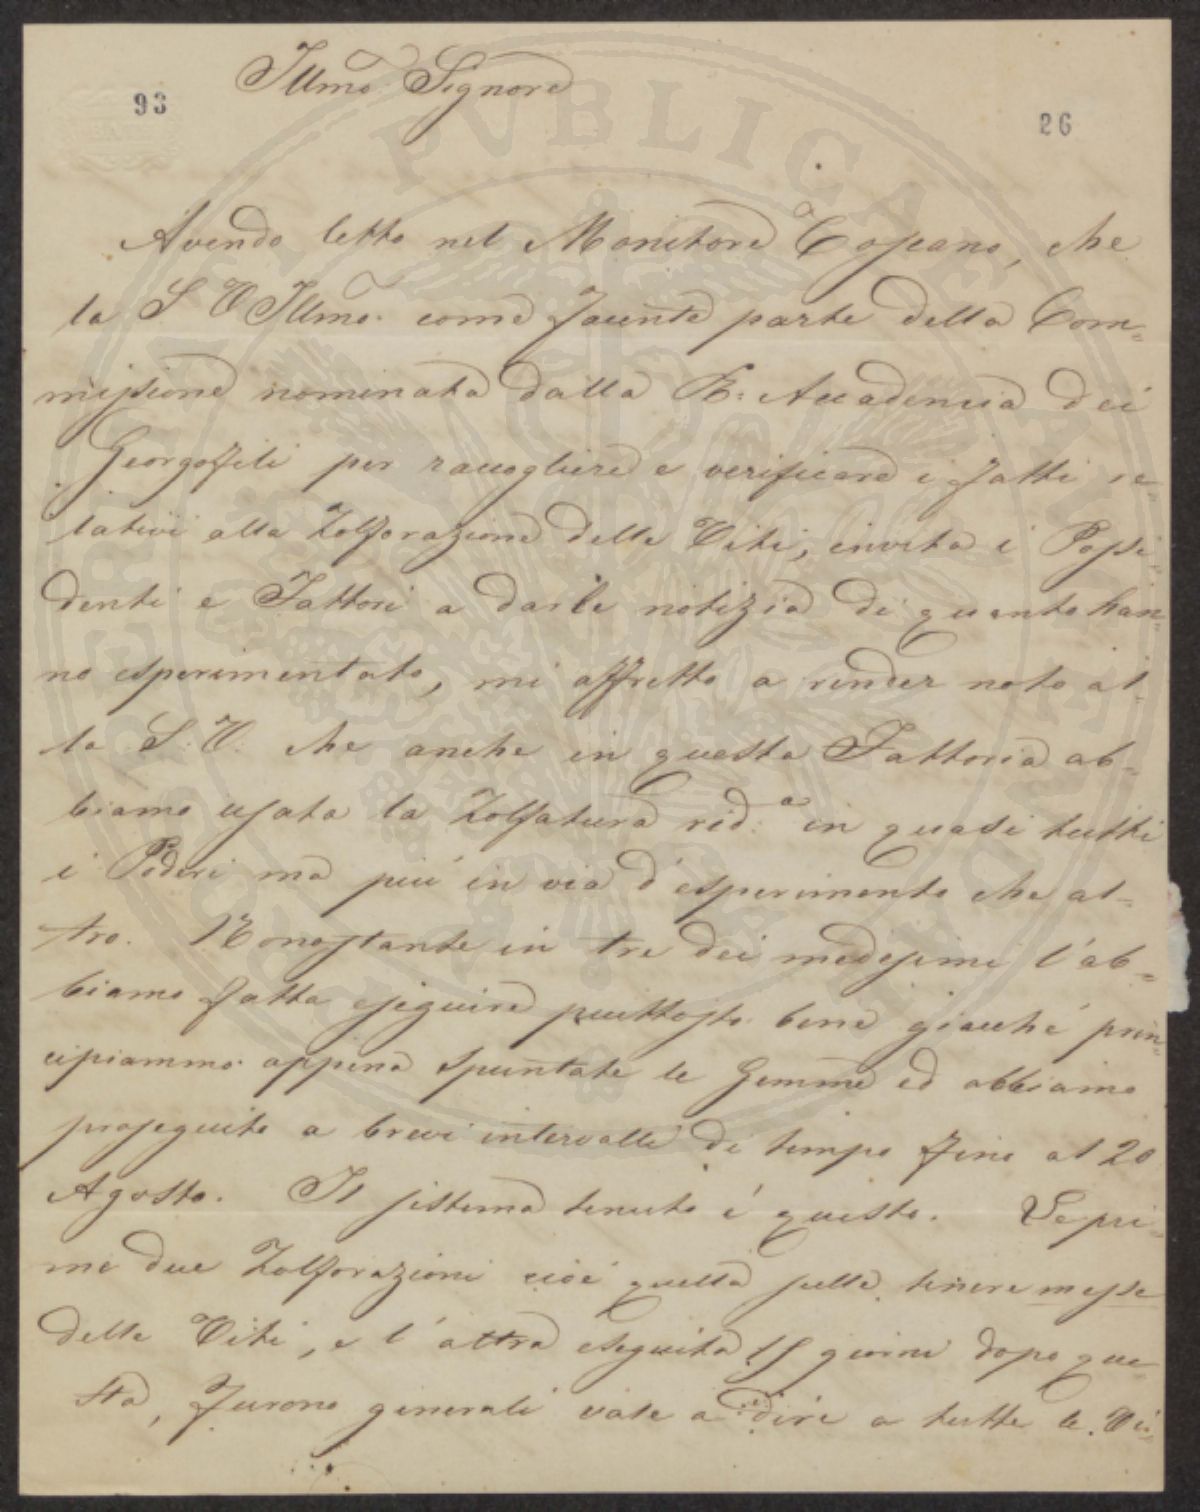 Illmo. Signore
93
26
Avendo letto nel Monitore Toscano, che
la S. V. Illma. come facente parte della Com=
missione nominata dalla R: Accademia dei
Georgofili per raccogliere e verificare i fatti re=
lativi alla Zolforazione delle Viti, invita i Possi=
denti e Fattori a darle notizia di quanto han=
no esperimentato, mi affretto a render noto al=
la S: V: che anche in questa Fattoria ab=
biamo usata la Zolfatura rid:a in quasi tutti
i Poderi ma piu' in via d'esperimento che al=
tro. Nonostante in tre dei medesimi l'ab=
biamo fatta eseguire piuttosto bene giacche' prin=
cipiammo appena spuntate le Gemme ed abbiamo
proseguito a brevi intervalli di tempo fino al 20
Agosto. Il sistema tenuto e' questo. Le pri=
me due Zolforazioni cioe' quella sulle tenere messe
delle Viti, e l'altra eseguita 15 giorni dopo que=
sta, furono generali vale a dire a tutte le Vi=